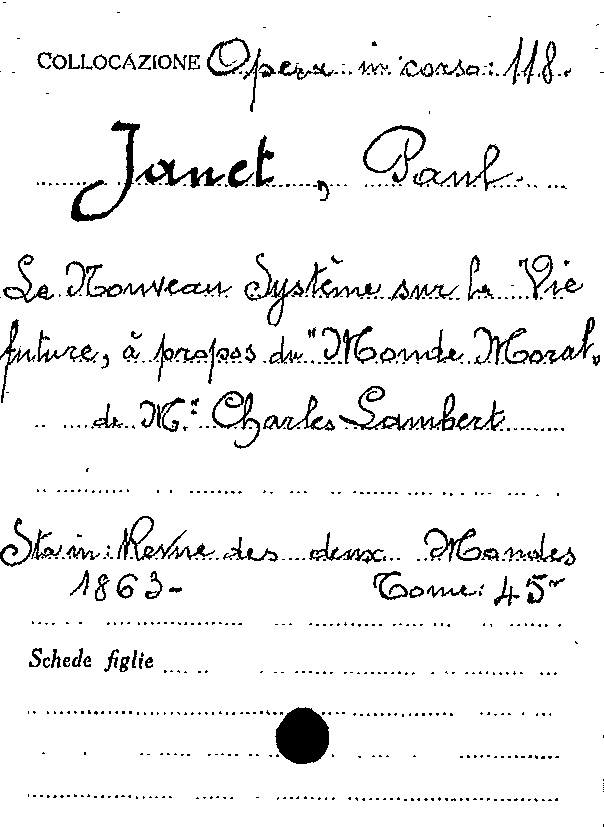 COLLOCAZIONE Opera in corso: 118.
Janet, Paul.
Le Nouveau Système sur la Vie
future, à propos du "Monde Moral"
de M.r Charles Lambert
Sta in: Revue des deux Mondes
1863- Tome: 45
Schede figlie